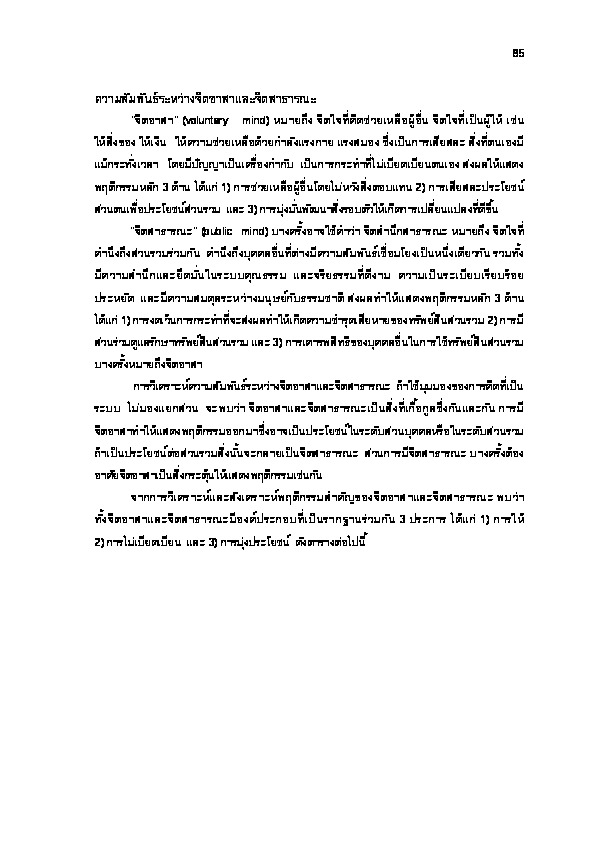 85
ความสัมพันธ์ระหว่างจิตอาสาและจิตสาธารณะ
"จิตอาสา" (voluntary mind) หมายถึง จิตใจที่คิดช่วยเหลือผู้อื่น จิตใจที่เป็นผู้ให้ เช่น
ให้สิ่งของ ให้เงิน ให้ความช่วยเหลือด้วยกำลังแรงกาย แรงสมอง ซึ่งเป็นการเสียสละ สิ่งที่ตนเองมี
แม้กระทั่งเวลา โดยมีปัญญาเป็นเครื่องกำกับ เป็นการกระทำที่ไม่เบียดเบียนตนเอง ส่งผลให้แสดง
พฤติกรรมหลัก 3 ด้าน ได้แก่ 1) การช่วยเหลือผู้อื่นโดยไม่หวังสิ่งตอบแทน 2) การเสียสละประโยชน์
ส่วนตนเพื่อประโยชน์ส่วนรวม และ 3) การมุ่งมั่นพัฒนาสิ่งรอบตัวให้เกิดการเปลี่ยนแปลงที่ดีขึ้น
"จิตสาธารณะ" (public mind) บางครั้งอาจใช้คำว่า จิตสำนึกสาธารณะ หมายถึง จิตใจที่
คำนึงถึงส่วนรวมร่วมกัน คำนึงถึงบุคคลอื่นที่ต่างมีความสัมพันธ์เชื่อมโยงเป็นหนึ่งเดียวกัน รวมทั้ง
มีความสำนึกและยึดมั่นในระบบคุณธรรม และจริยธรรมที่ดีงาม ความเป็นระเบียบเรียบร้อย
ประหยัด และมีความสมดุลระหว่างมนุษย์กับธรรมชาติ ส่งผลทำให้แสดงพฤติกรรมหลัก 3 ด้าน
ได้แก่ 1) การงดเว้นการกระทำที่จะส่งผลทำให้เกิดความชำรุดเสียหายของทรัพย์สินส่วนรวม 2) การมี
ส่วนร่วมดูแลรักษาทรัพย์สินส่วนรวม และ 3) การเคารพสิทธิของบุคคลอื่นในการใช้ทรัพย์สินส่วนรวม
บางครั้งหมายถึงจิตอาสา
การวิเคราะห์ความสัมพันธ์ระหว่างจิตอาสาและจิตสาธารณะ ถ้าใช้มุมมองของการคิดที่เป็น
ระบบ ไม่มองแยกส่วน จะพบว่า จิตอาสาและจิตสาธารณะเป็นสิ่งที่เกื้อกูลซึ่งกันและกัน การมี
จิตอาสาทำให้แสดงพฤติกรรมออกมาซึ่งอาจเป็นประโยชน์ในระดับส่วนบุคคลหรือในระดับส่วนรวม
ถ้าเป็นประโยชน์ต่อส่วนรวมสิ่งนั้นจะกลายเป็นจิตสาธารณะ ส่วนการมีจิตสาธารณะ บางครั้งต้อง
อาศัยจิตอาสาเป็นสิ่งกระตุ้นให้แสดงพฤติกรรมเช่นกัน
จากการวิเคราะห์และสังเคราะห์พฤติกรรมสำคัญของจิตอาสาและจิตสาธารณะ พบว่า
ทั้งจิตอาสาและจิตสาธารณะมีองค์ประกอบที่เป็นรากฐานร่วมกัน 3 ประการ ได้แก่ 1) การให้
2) การไม่เบียดเบียน และ 3) การมุ่งประโยชน์ ดังตารางต่อไปนี้